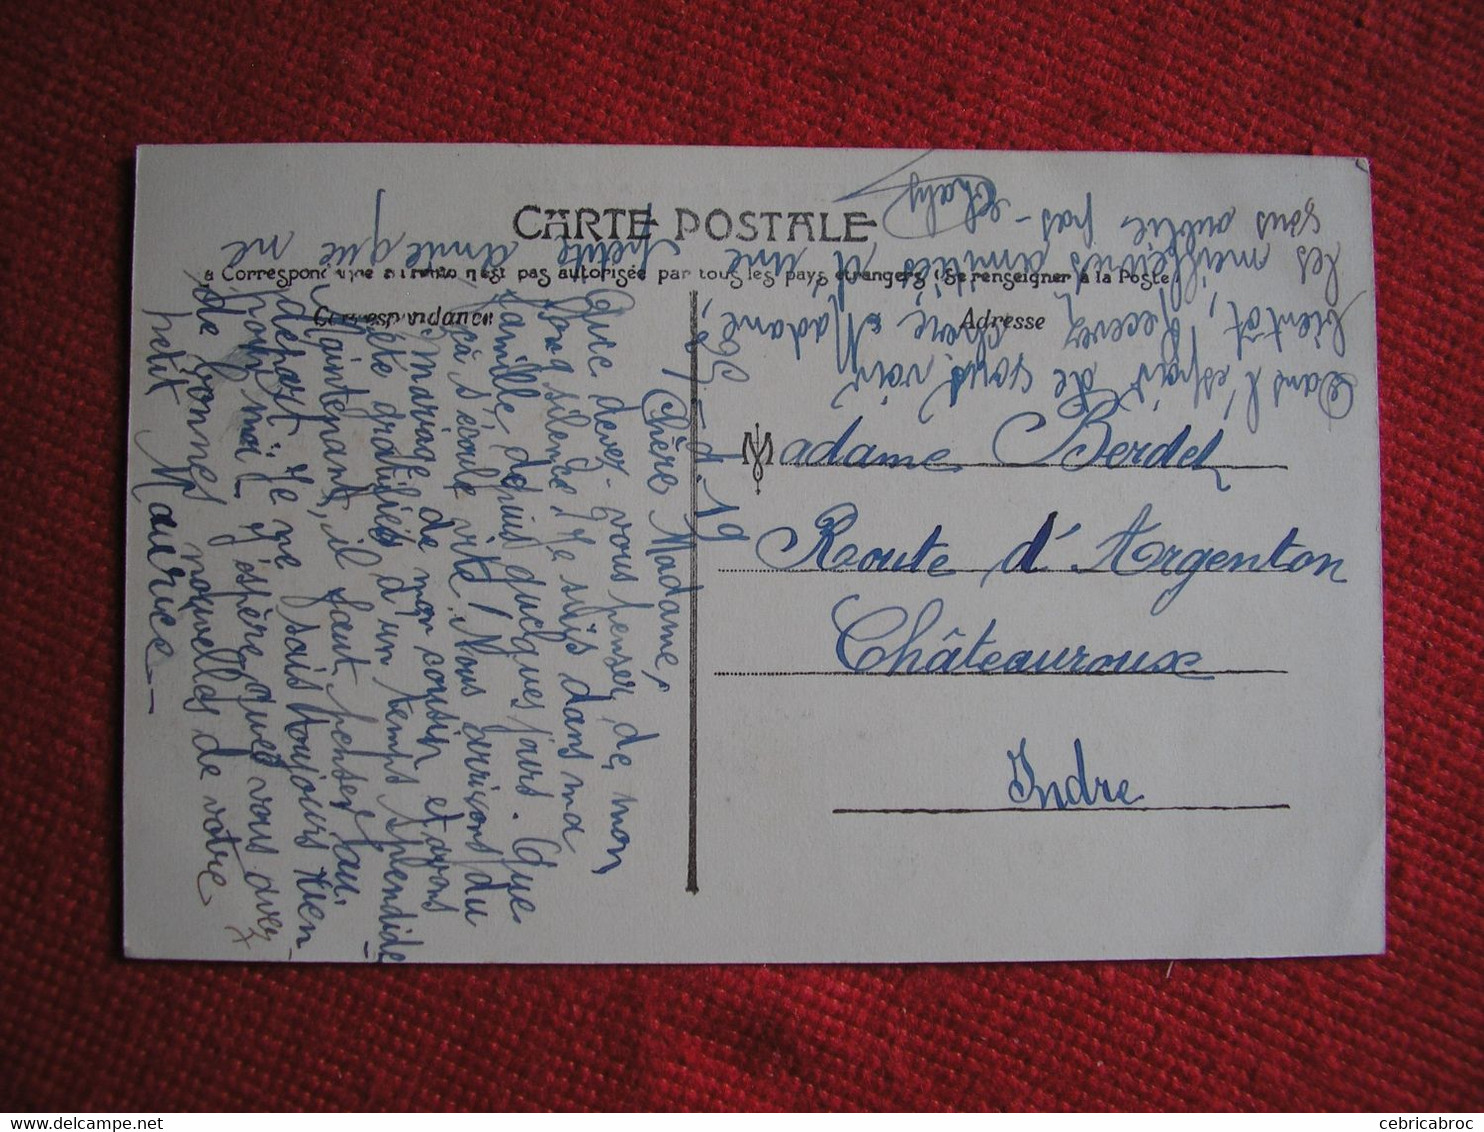 CARTE POSTALE
La Correspondance au recto n'est pas autorisée par tous les pays étrangers (Se renseigner à la Poste)
Correspondance
Adresse
Madame Berdet
Route d'Argenton
Châteauroux
Indre
Chère Madame,
Que devez-vous penser de mon
long silence. Je suis dans ma
famille depuis quelques jours. Que
çà s'écoule vite! Nous arrivons du
mariage de mon cousin et avons
été gratifiés d'un temps splendide
Maintenant, il faut penser au
départ. Je ne sais toujours rien
pour moi. J'espère que vous avez
de bonnes nouvelles de votre
petit Maurice
Dans l'espoir de vous voir
bientôt, Recevez, Chère Madame,
les meilleures amitiés d'une petite amie que ne
vous oublie pas -
cebricabroc